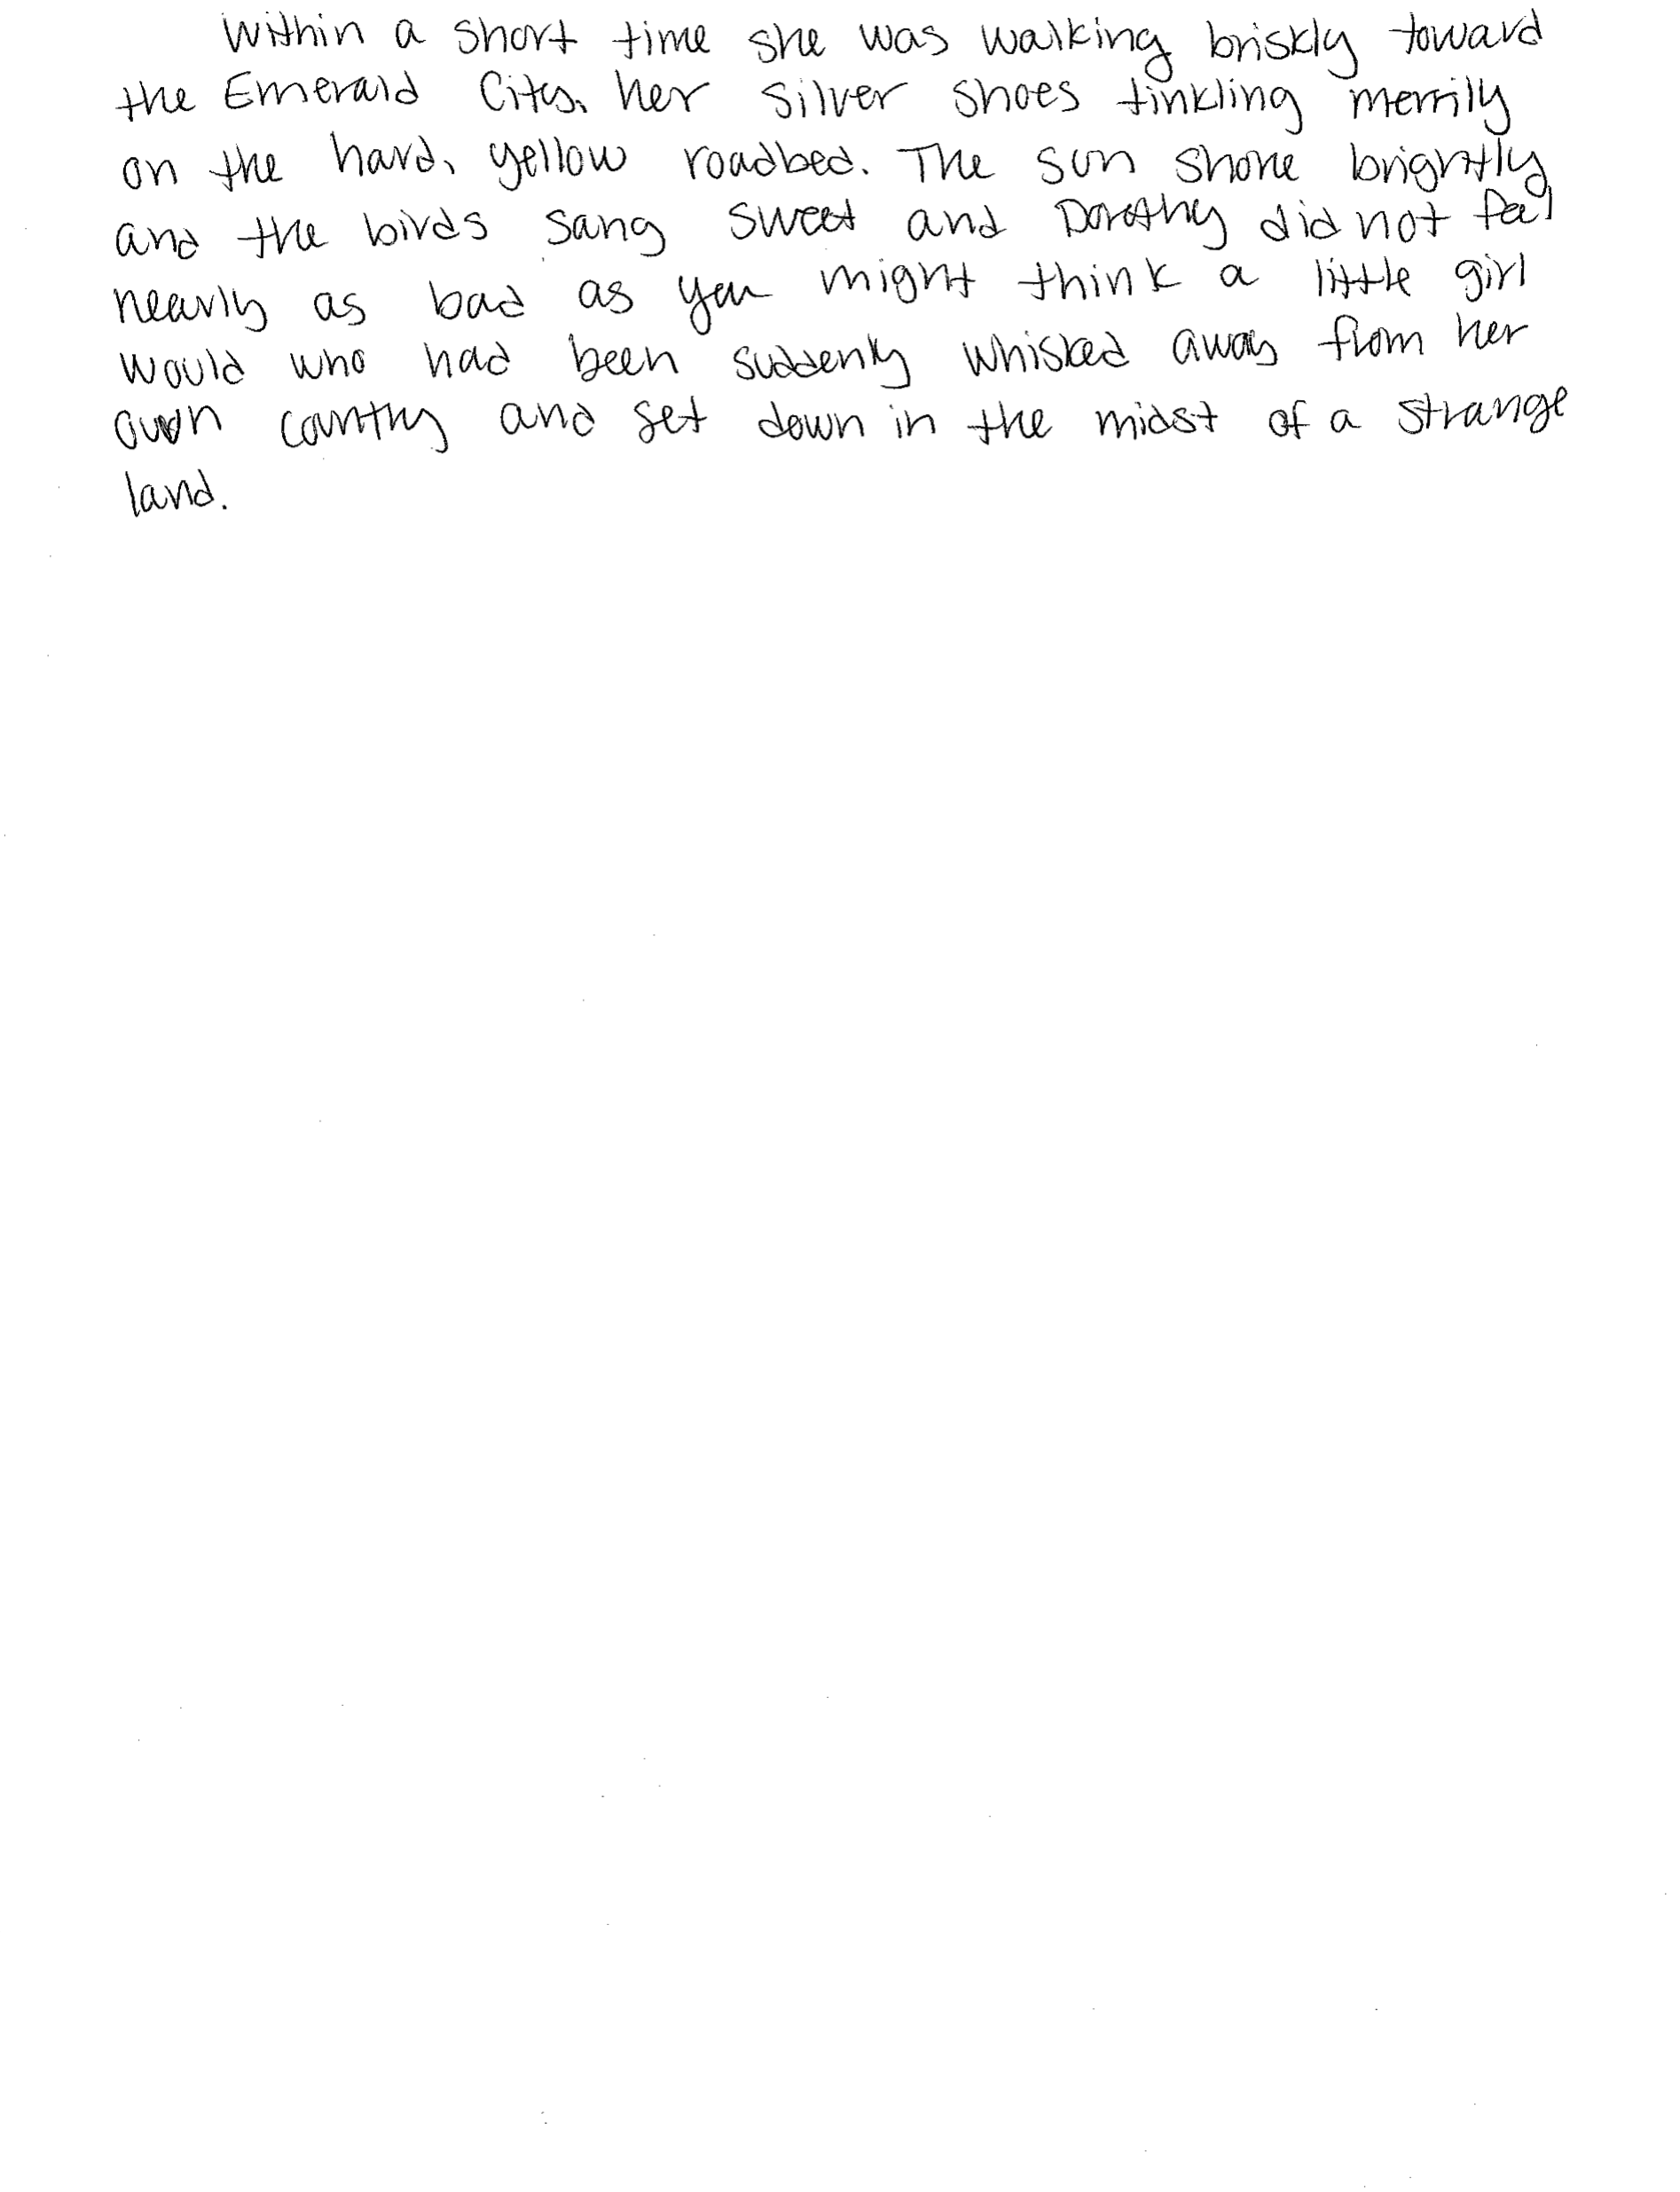 Within a short time she was walking briskly toward
the Emerald City, her silver shoes tinkling merrily
on the hard, yellow roadbed. The sun shone brightly
and the birds sang sweet and Dorothy did not feel
nearly as bad as you might think a little girl
would who had been suddenly whisked away from her
own country and set down in the midst of a strange
land.